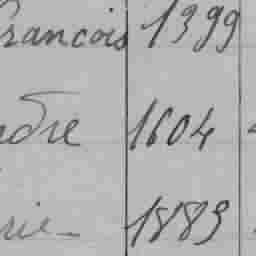 francois 1399
ndre 1604
rie 1883